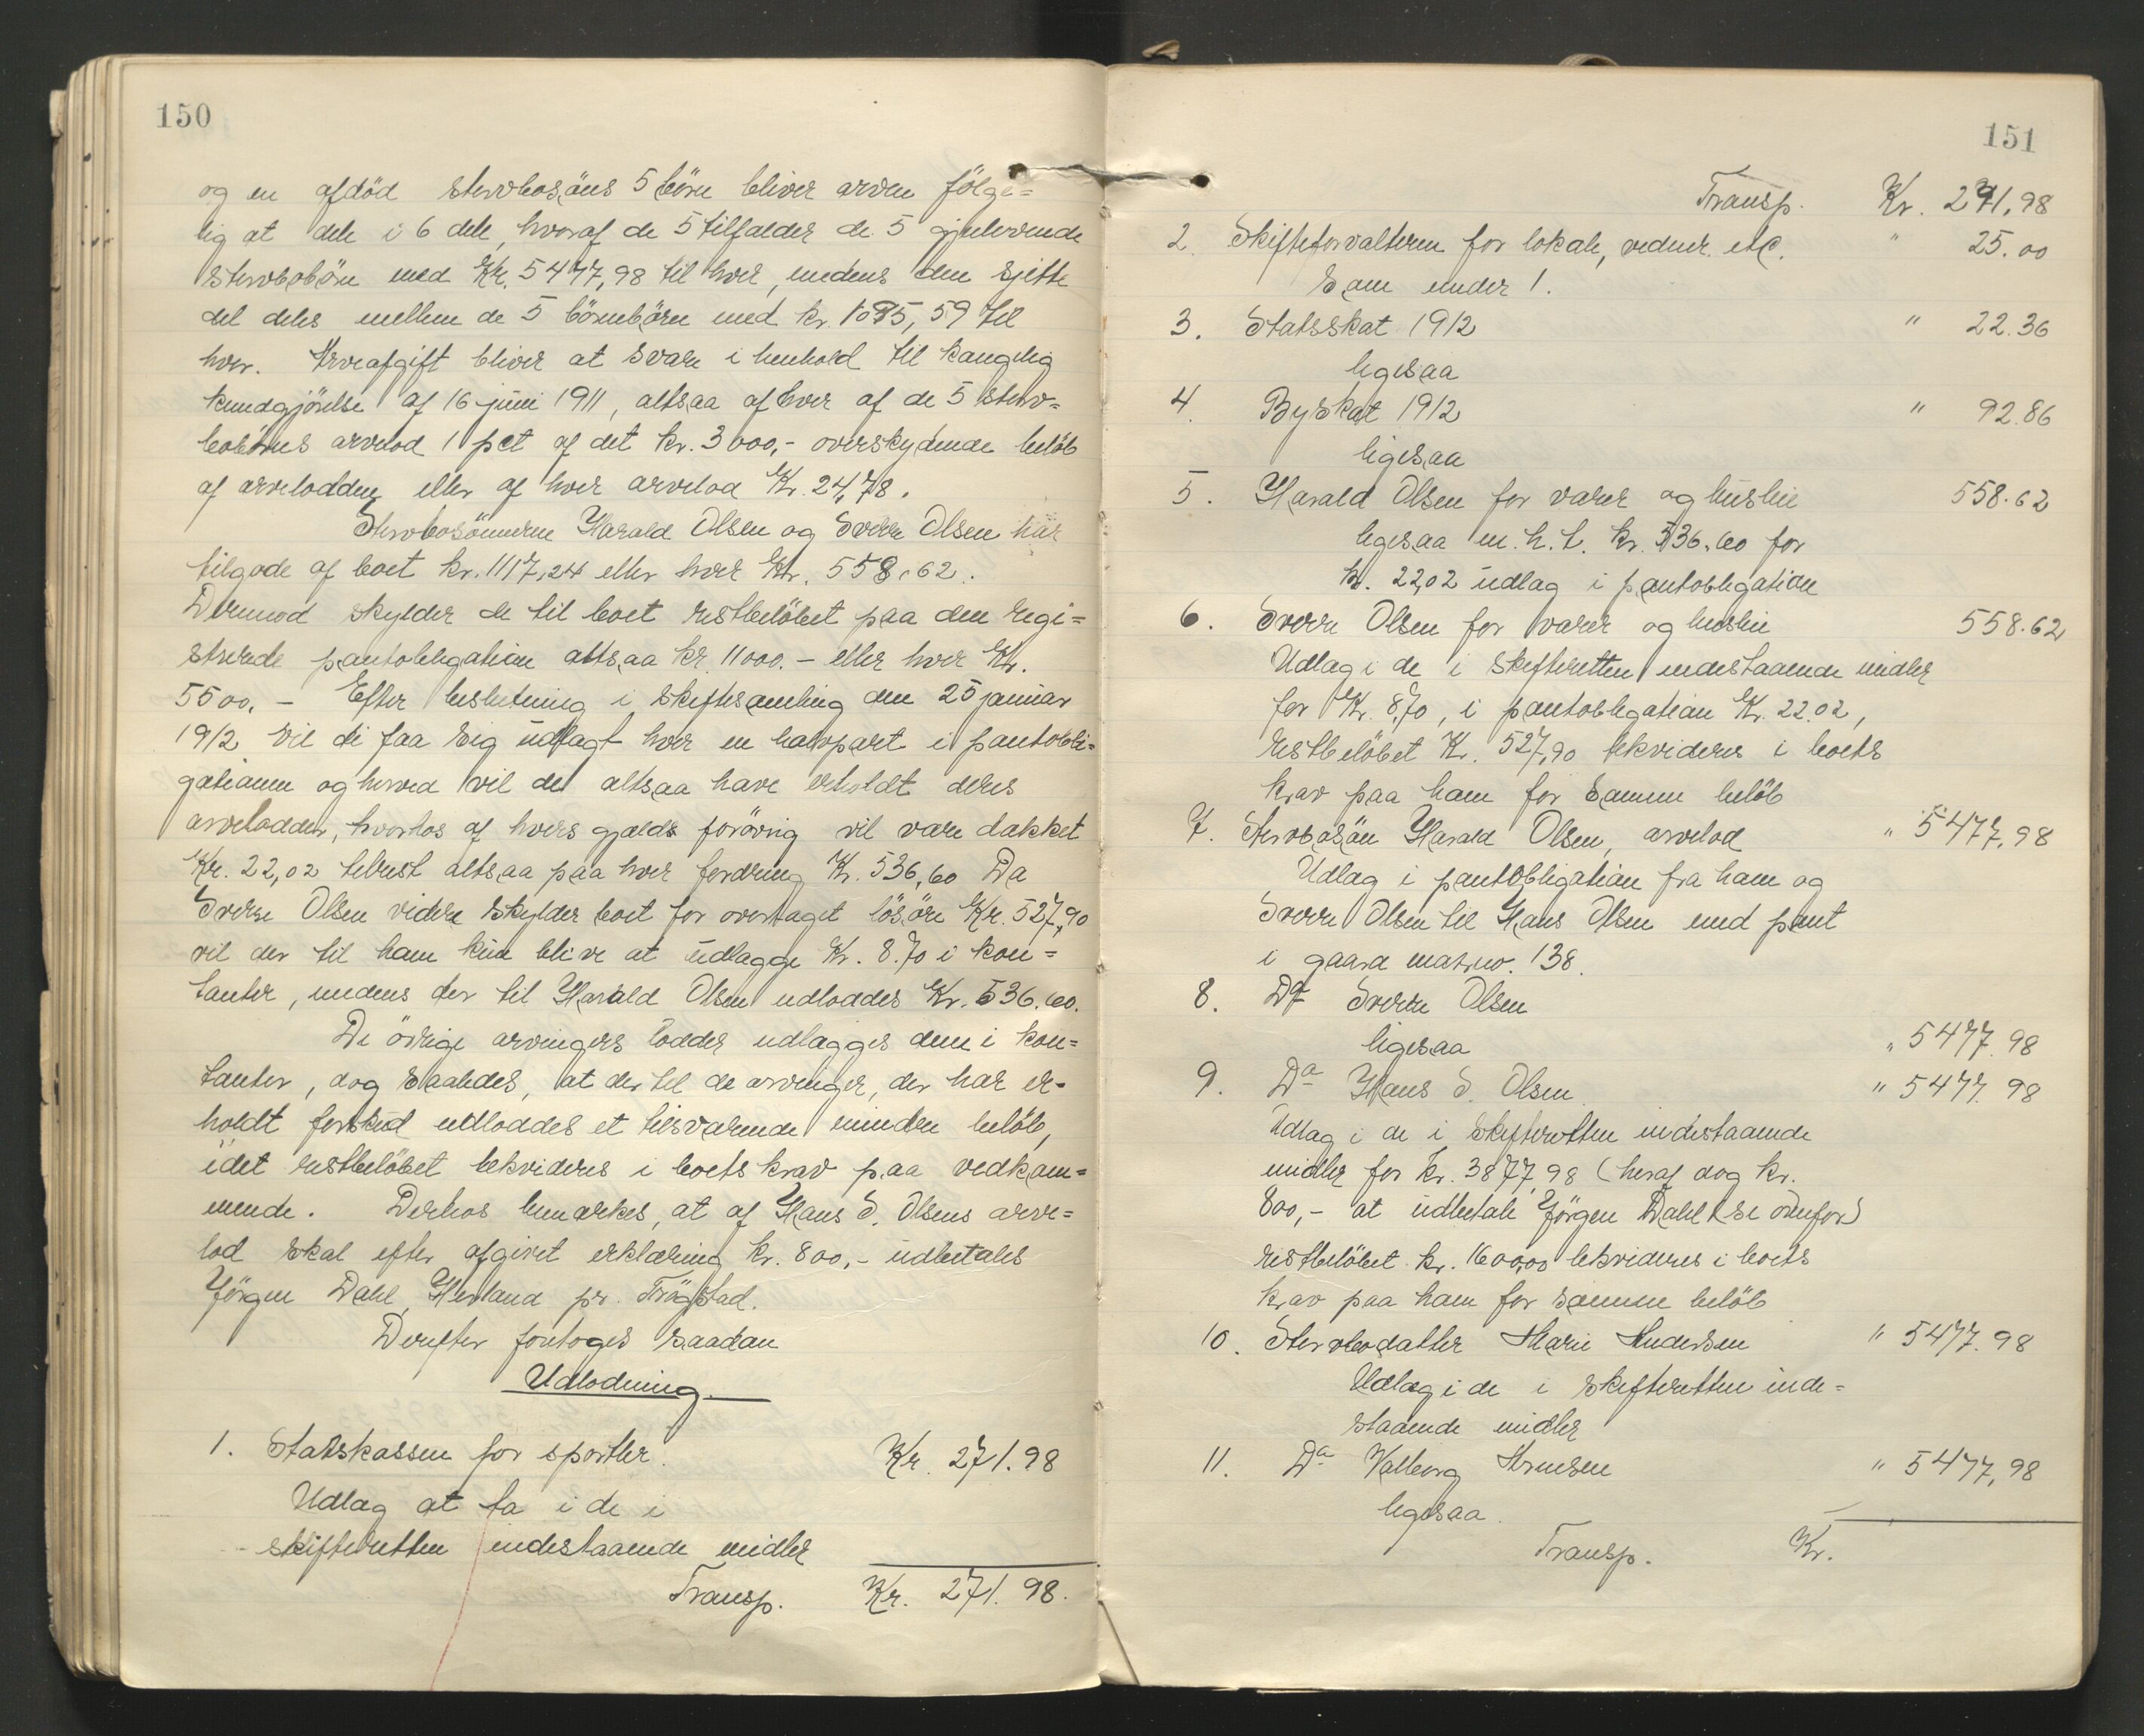 150
og en afdöd stervbosöns 5 börn bliver arven fölge=
lig at dele i 6 dele, hvoraf de 5 tilfalder de 5 gjenlevende
stervbobörn med Kr. 5477,98 til hver, medens den sjette
del deles mellem de 5 börnebörn med kr. 1095,59 til
hver. Arveafgift bliver at svare i henhold til kongelig
kundgjörelse af 16 juni 1911, altsaa af hver af de 5 sterv=
bobörns arvelod 1 pct af det kr. 3000,- overskydende belöb
af arvelodden eller af hver arvelod Kr. 24,78.
Stervbosönnerne Harald Olsen og Sverre Olsen har
tilgode af boet kr. 1117,24 eller hver Kr. 558,62.
Derimod skylder de til boet restbelöbet paa den regi=
strerede pantobligation altsaa kr 11000.- eller hver Kr.
5500.- Efter beslutning i skiftesamling den 25 januar
1912 vil de faa sig udlagt hver en halvpart i pantobli=
gationen og herved vil de altsaa have erholdt deres
arvelodder, hvorhos af hvers gjælds forövrig vil være dækket
Kr. 22,02 tilrest altsaa paa hver fordring Kr. 536,60 Da
Sverre Olsen videre skylder boet for overtaget lösöre Kr. 527,90
vil der til ham kun blive at udlægge Kr. 8.70 i kon=
tanter, medens der til Harald Olsen udloddes Kr. 536.60.
De övrige arvingers lodder udlægges dem i kon=
tanter, dog saaledes, at der til de arvinger, der har er=
holdt forskud udloddes et tilsvarende mindre belöb,
idet restbelöbet likvideres i boets krav paa vedkom=
mende. Derhos bemærkes, at af Hans S. Olsens arve=
lod skal efter afgivet erklæring kr. 800,- udbetales
Jörgen Dahl, Herland pr. Trögstad.
Derefter foretoges saadan
Udlodning.
1. Statskassen for sportler. Kr. 271.98
Udlæg at ta i de i
skifteretten indestaaende midler
Transp. Kr. 271.98.
151
Transp. Kr. 271,98
2 Skifteforvalteren for lokale, vidner etc. " 25.00
Som under 1.
3. Statsskat 1912 " 22.36
ligesaa
4. Byskat 1912 " 92.86
ligesaa
5. Harald Olsen for varer og husleie 558.62
ligesaa m.h.t. kr. 536.60 for
kr. 22,02 udlæg i pantobligation
6. Sverre Olsen for varer og husleie 558.62
Udlæg i de i skifteretten indestaaende midler
for Kr. 8,70, i pantobligation Kr. 22.02,
restbelöbet Kr. 527,90 likvideres i boets
krav paa ham for samme belöb
7. Stervbosön Harald Olsen, arvelod " 5477,98
Udlæg i pantobligation fra ham og
Sverre Olsen til Hans Olsen med pant
i gaard matr.no. 138.
8. Do Sverre Olsen
ligesaa " 5477.98
9. Do Hans S. Olsen " 5477.98
Udlæg i de i skifteretten indestaaende
midler for kr. 3877,98 (heraf dog kr.
800,- at udbetale Jörgen Dahl (se ovenfor)
restbelöbet kr. 1600,00 likvideres i boets
krav paa ham for samme belöb
10. Stervbodatter Marie Andersen " 5477.98
Udlæg i de i skifteretten inde=
staaende midler
11. Do Valborg " 5477,98
ligesaa.
Transp. Kr.